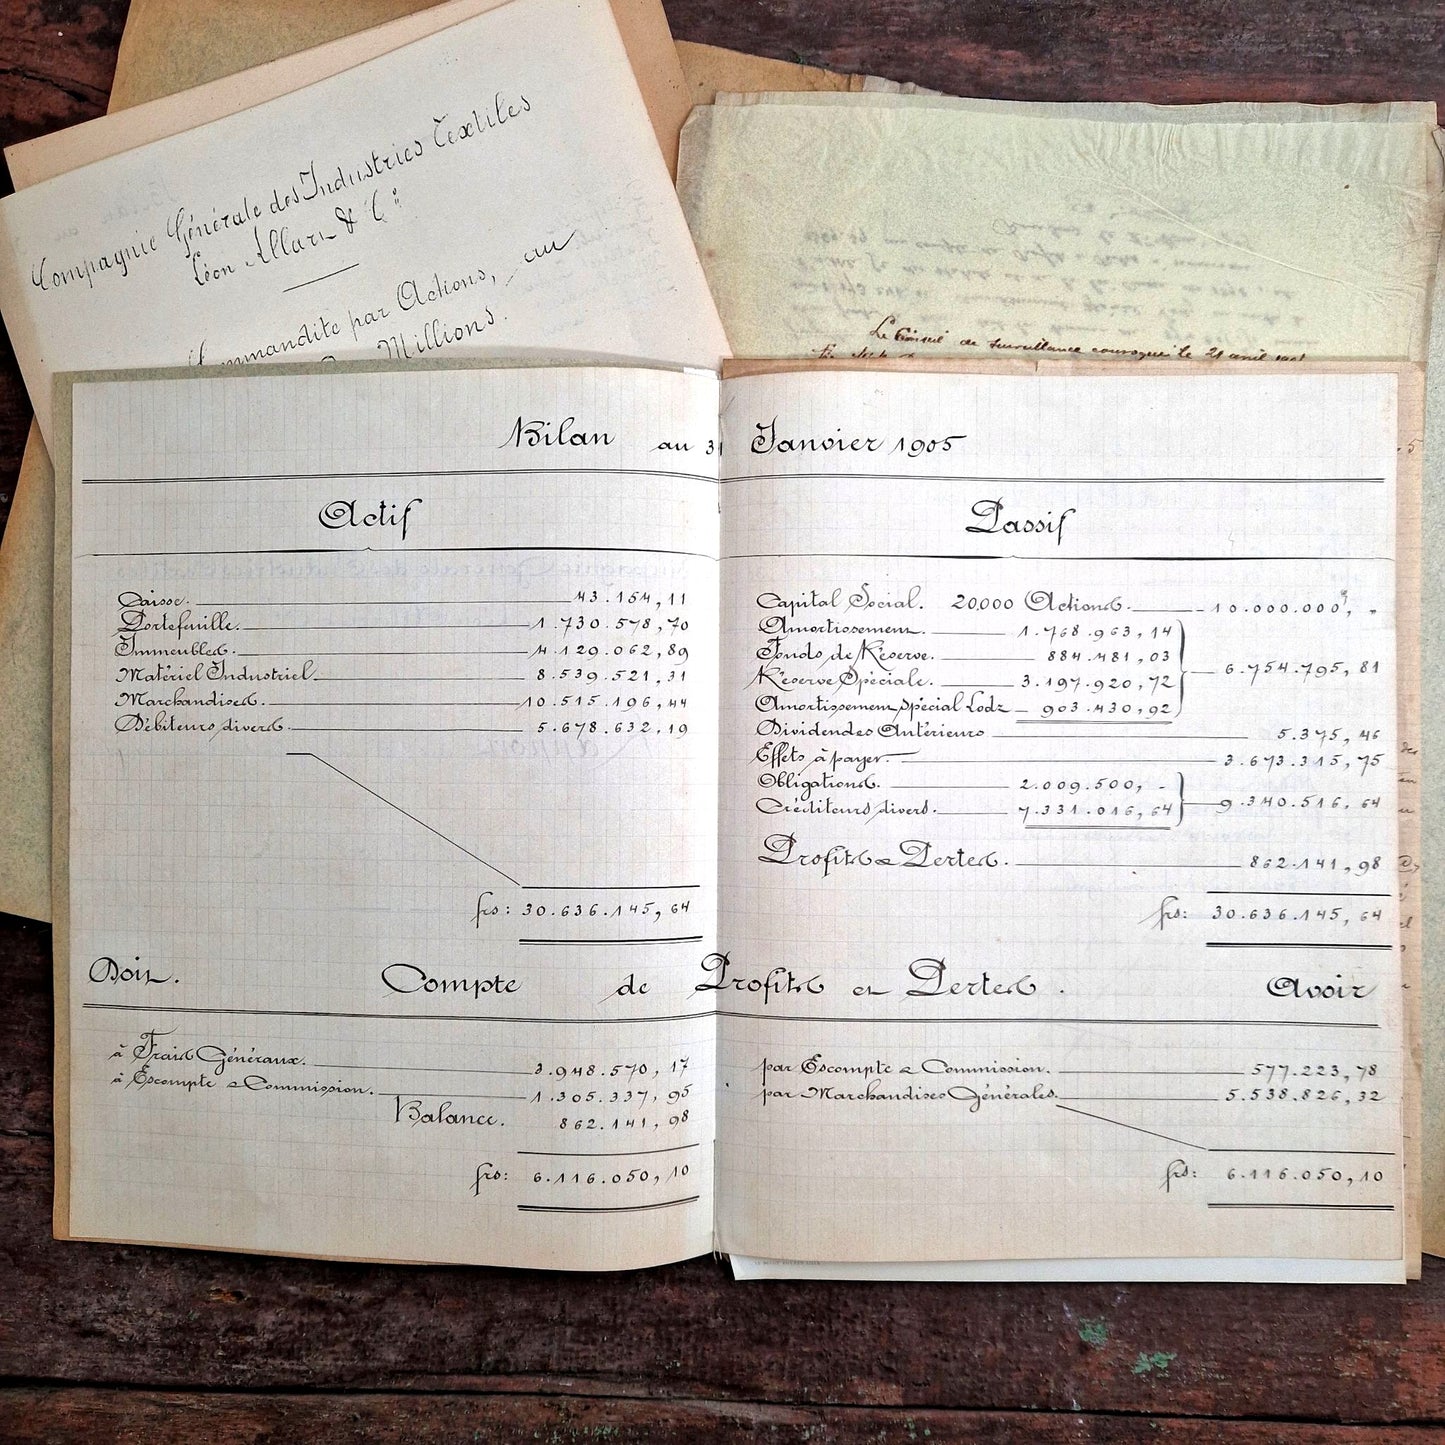 Compagnie Générale des Industries Textiles
Léon Allart & Cie
Commandite par Actions, au
Millions.
Le Conseil de surveillance convoqué le 21 avril
Bilan au 31 Janvier 1905
Actif
Caisse. 43.154,11
Portefeuille. 1.730.578,70
Immeubles. 4.129.062,89
Matériel Industriel 8.539.521,31
Marchandises. 10.515.196,44
Débiteurs divers 5.678.632,19
frs: 30.636.145,64
Passif
Capital Social. 20.000 Actions. 10.000.000, "
Amortissement. 1.768.963,14
Fonds de Réserve. 884.481,03
6.754.795,81
Réserve Spéciale. 3.197.920,72
Amortissement spécial Lodz 903.430,92
Dividendes Antérieurs 5.375,46
Effets à payer. 3.673.315,75
Obligations. 2.009.500, -
9.340.516,64
Créditeurs divers. 7.331.016,64
Profits & Pertes. 862.141,98
frs: 30.636.145,64
Doit. Compte de Profits et Pertes. Avoir
à Frais Généraux. 3.948.570,17
à Escompte & Commission. 1.305.337,95
Balance. 862.141,98
frs: 6.116.050,10
par Escompte & Commission. 577.223,78
par Marchandises Générales. 5.538.826,32
frs: 6.116.050,10